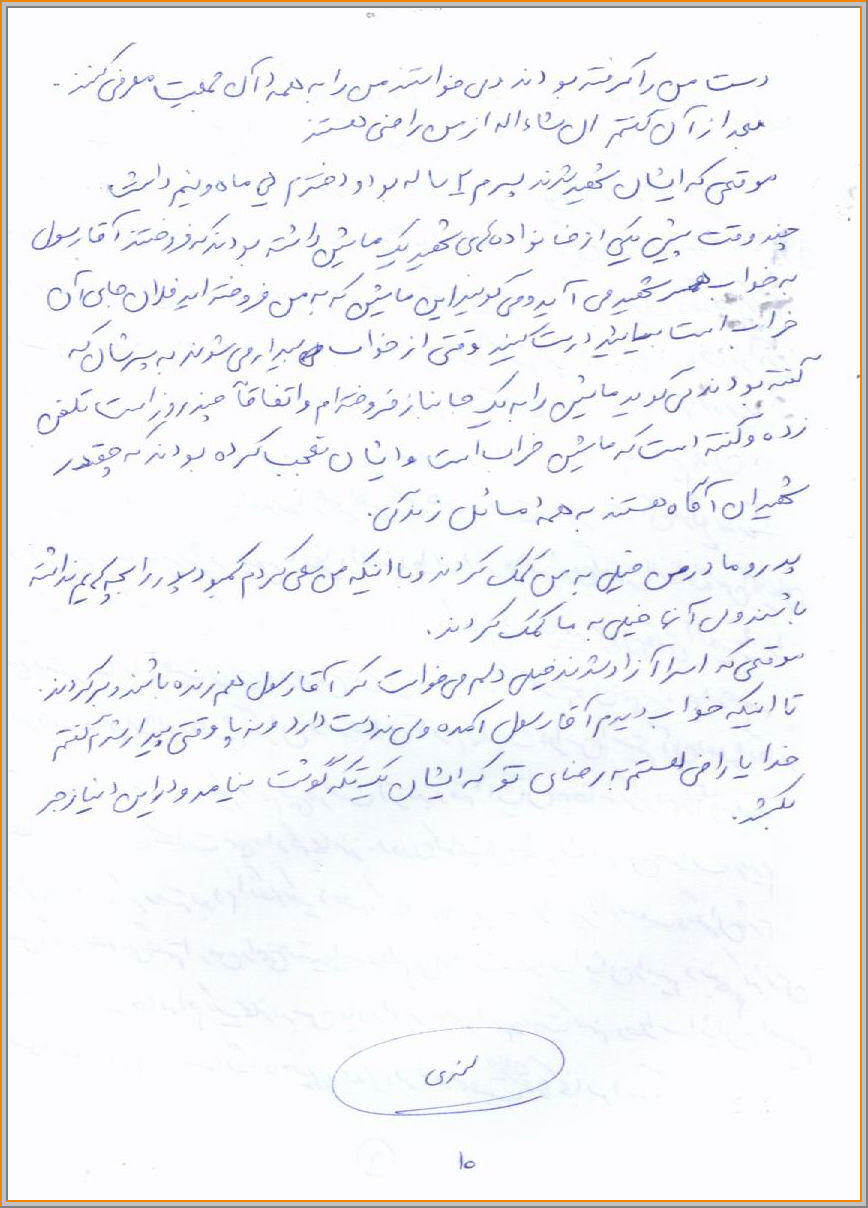 دست من را گرفته بودند و می خواستند من را به همه آن جمعیت معرفی کنند.
بعد از آن گفتم ان شاءاله از من راضی هستند
موقعی که ایشان شهید شدند پسرم ساله بود و دخترم ماه و نیم داشت.
چند وقت پیش یکی از خانواده های شهید یک ماشین داشته بودند که فروختند آقا رسول
به خواب همسر شهید می آید و می گویند این ماشین که به من فروخته اید فلان جای آن
خراب است بیایید درست کنید وقتی از خواب بیدار می شوند به پسرشان که
گفته بودند می گوید ماشین را به یک جانباز فروخته ام و اتفاقاً چند روز است تلفن
زده و گفته است که ماشین خراب است و ایشان تعجب کرده بودند که چقدر
شهیدان آگاه هستند به همه مسائل زندگی.
پدر و مادر من خیلی به من کمک کردند و با اینکه من سعی کردم کمبود پدر را بچه هایم نداشته
باشند ولی آنها خیلی به ما کمک کردند.
موقعی که اسرا آزاد شدند خیلی دلم می خواست که آقا رسول هم زنده باشند و برگردند.
تا اینکه خواب دیدم آقا رسول آمده ولی نه دست دارد و نه پا وقتی بیدار شدم گفتم
خدایا راضی هستم به رضای تو که ایشان یک تکه گوشت نیامد و در این دنیا زجر
بکشد.
۱۰